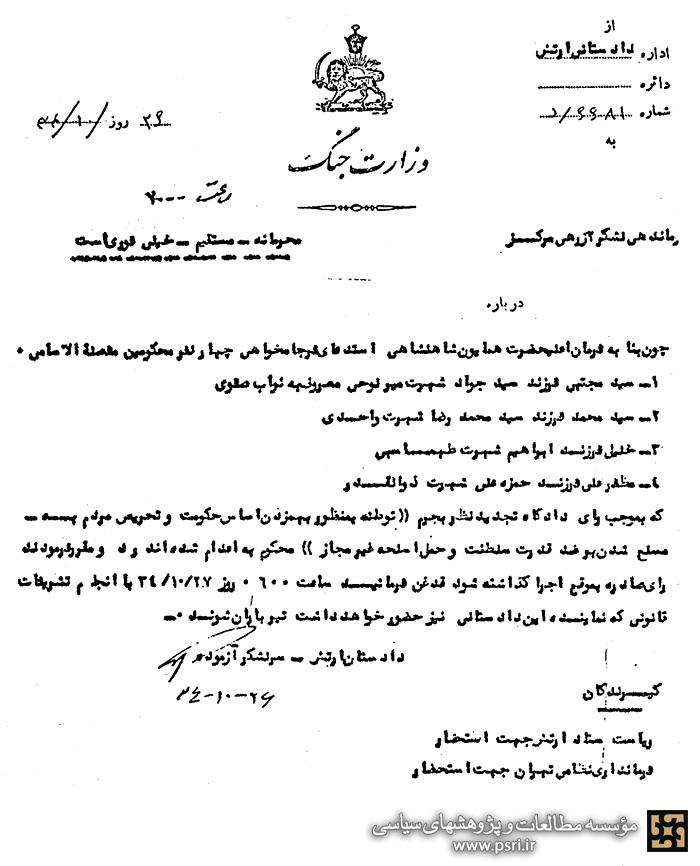 از
اداره دادستانی ارتش
دائره
شماره
به
روز
وزارت جنگ
محرمانه - مستقیم - خیلی فوری است
رماندهی لشکر ۲ زرهی مرکز
درباره
چون بنا به فرمان اعلیحضرت همایون شاهنشاهی استدعای فرجامخواهی چهار نفر محکومین مفصلة الاسامی ۰
۱- سید مجتبی فرزند سید جواد شهرت میرلوحی معروف به نواب صفوی
۲- سید محمد فرزند سید محمد رضا شهرت واحدی
۳- خلیل فرزند ابراهیم شهرت طهماسبی
۴- مظفر علی فرزند حمزه علی شهرت ذوالقدر
که بموجب رای دادگاه تجدید نظر بجرم (( توطئه بمنظور بهمزدن اساس حکومت و تحریص مردم به -
مسلح شدن بر ضد قدرت سلطنت و حمل اسلحه غیر مجاز )) محکوم به اعدام شده اند رد و مقرر فرمودند
رای صادره بموقع اجرا گذاشته شود قدغن فرمائید ساعت ۰۶۰۰ روز ۳۴/۱۰/۲۷ با انجام تشریفات
قانونی که نماینده این دادستانی نیز حضور خواهد داشت تیر باران شوند ۰-
دادستان ارتش - سرلشکر آزموده
۳۴-۱۰-۲۶
گیرندگان
ریاست ستاد ارتش جهت استحضار
فرمانداری نظامی تهران جهت استحضار
مؤسسه مطالعات و پژوهشهای سیاسی
www.psri.ir